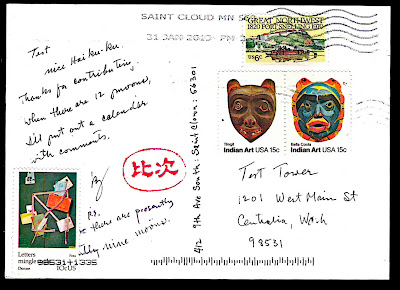 SAINT CLOUD MN 563
31 JAN 2013 PM
GREAT NORTHWEST
1820 FORT SNELLING 1970
US 6c
Test
nice Haiku-ku.
Thanks for contributing,
when there are 12 moons,
I'll put out a calendar
with comments.
P.S.
there are presently
nine moons.
比次
412 9th Ave South: Saint Cloud: 56301
Tlingit
Indian Art USA 15c
Bella Coola
Indian Art USA 15c
Test Tower
1201 West Main St
Centralia, Wash
98531
Letters
mingle
10c US
98531+1335